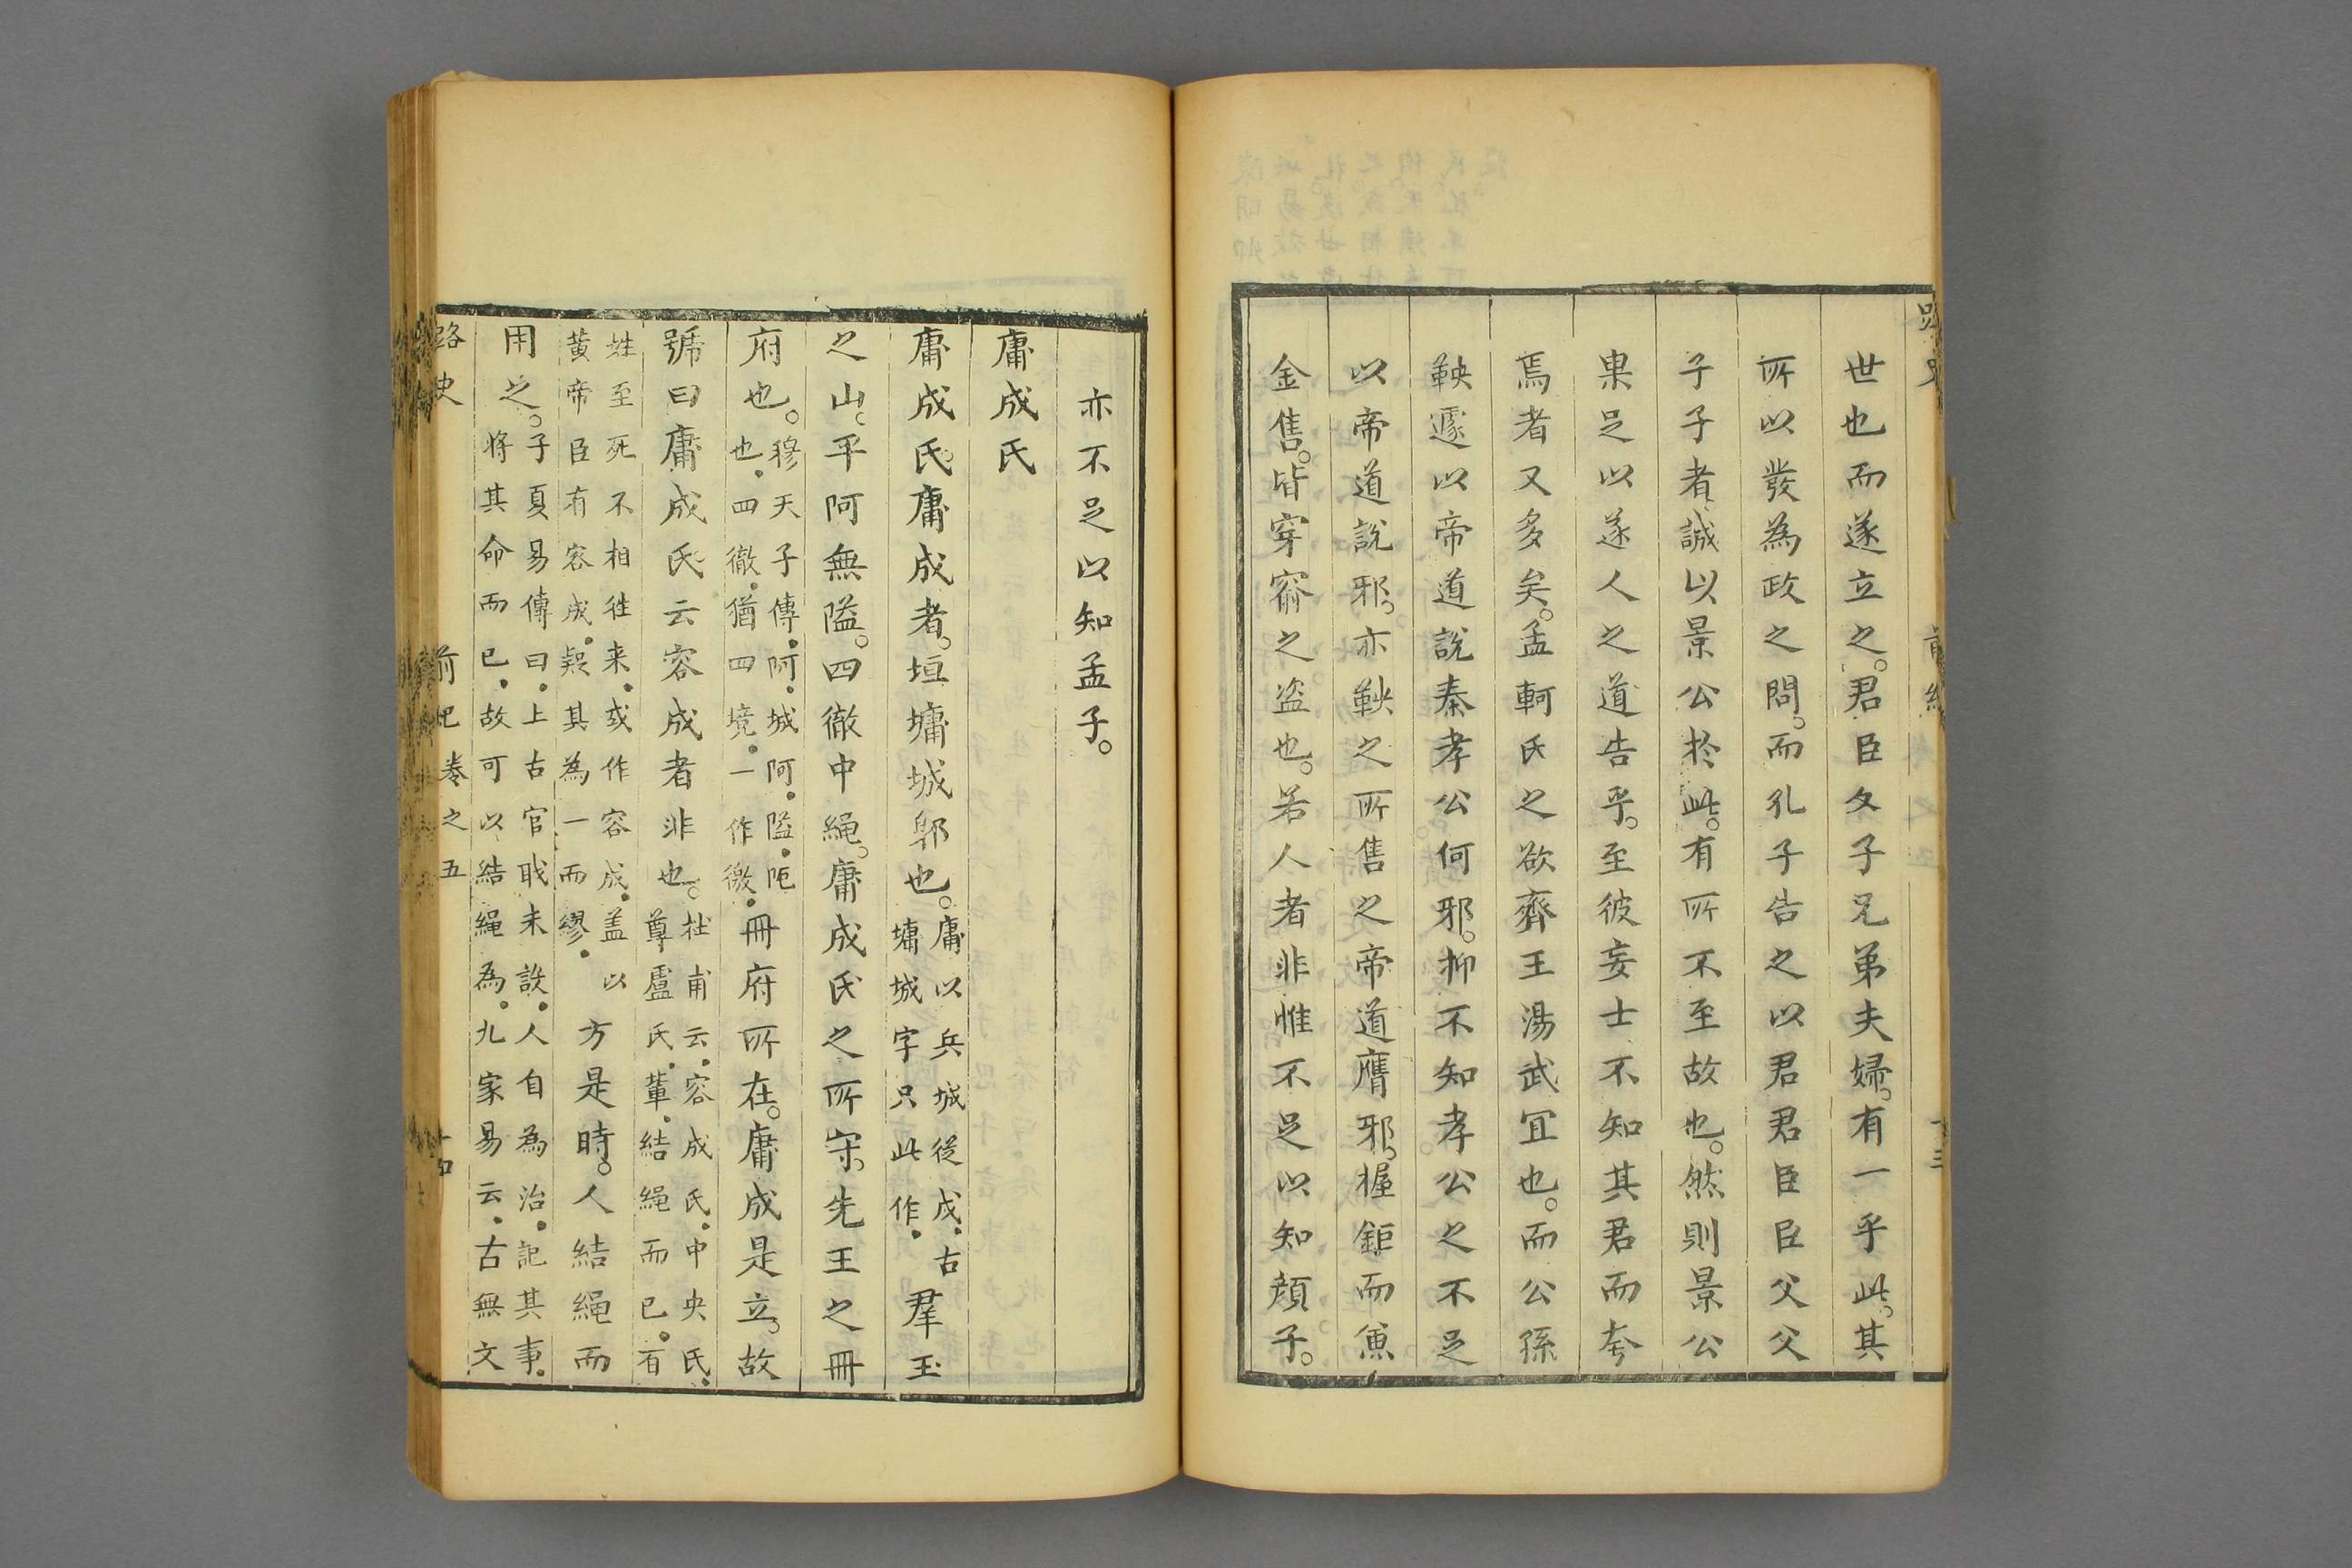 世也而遂立之。君臣父子兄弟夫婦。有一乎此。其
所以發為政之問。而孔子告之以君君臣臣父父
子子者。誠以景公於此。有所不至故也。然則景公
果足以遂人之道告乎。至彼妄士不知其君而夸
焉者又多矣。孟軻氏之欲齊王湯武宜也。而公孫
鞅遽以帝道說秦孝公何邪。抑不知孝公之不足
以帝道說邪。亦鞅之所售之帝道贋邪。握鉅而僞
金售。皆穿窬之盗也。若人者非惟不足以知顔子。
亦不足以知孟子。
庸成氏
庸成氏。庸成者。垣墉城郭也。庸以兵城從戍。古墉城字只此作。羣玉
之山。平阿無隘。四徹中繩。庸成氏之所守。先王之冊
府也。穆天子傳。阿。城阿。隘。阨也。四徹。猶四境。一作徼。冊府所在。庸成是立。故
號曰庸成氏。云容成者非也。杜甫云。容成氏。中央氏。尊盧氏。輩。結繩而已。百
姓至死不相往来。或作容成。盖以黄帝臣有容成。疑其為一而繆。方是時。人結繩而
用之。子夏易傳曰。上古官職未設。人自為治。記其事。将其命而已。故可以結繩為。九家易云。古無文
路史 前紀卷之五 十四